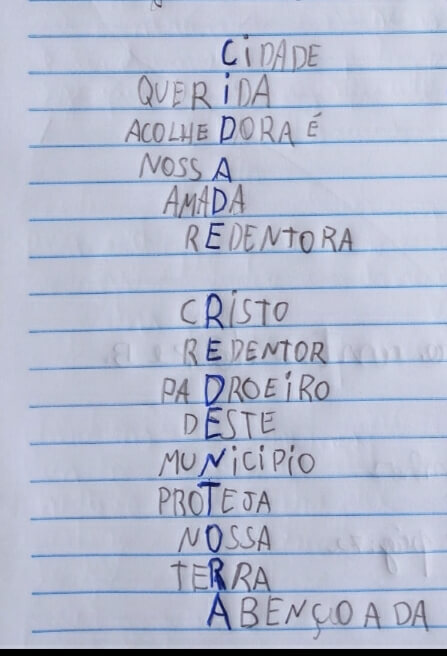 CIDADE
QUERIDA
ACOLHEDORA É
NOSSA
AMADA
REDENTORA
CRISTO
REDENTOR
PADROEIRO
DESTE
MUNICIPIO
PROTEJA
NOSSA
TERRA
ABENÇOADA